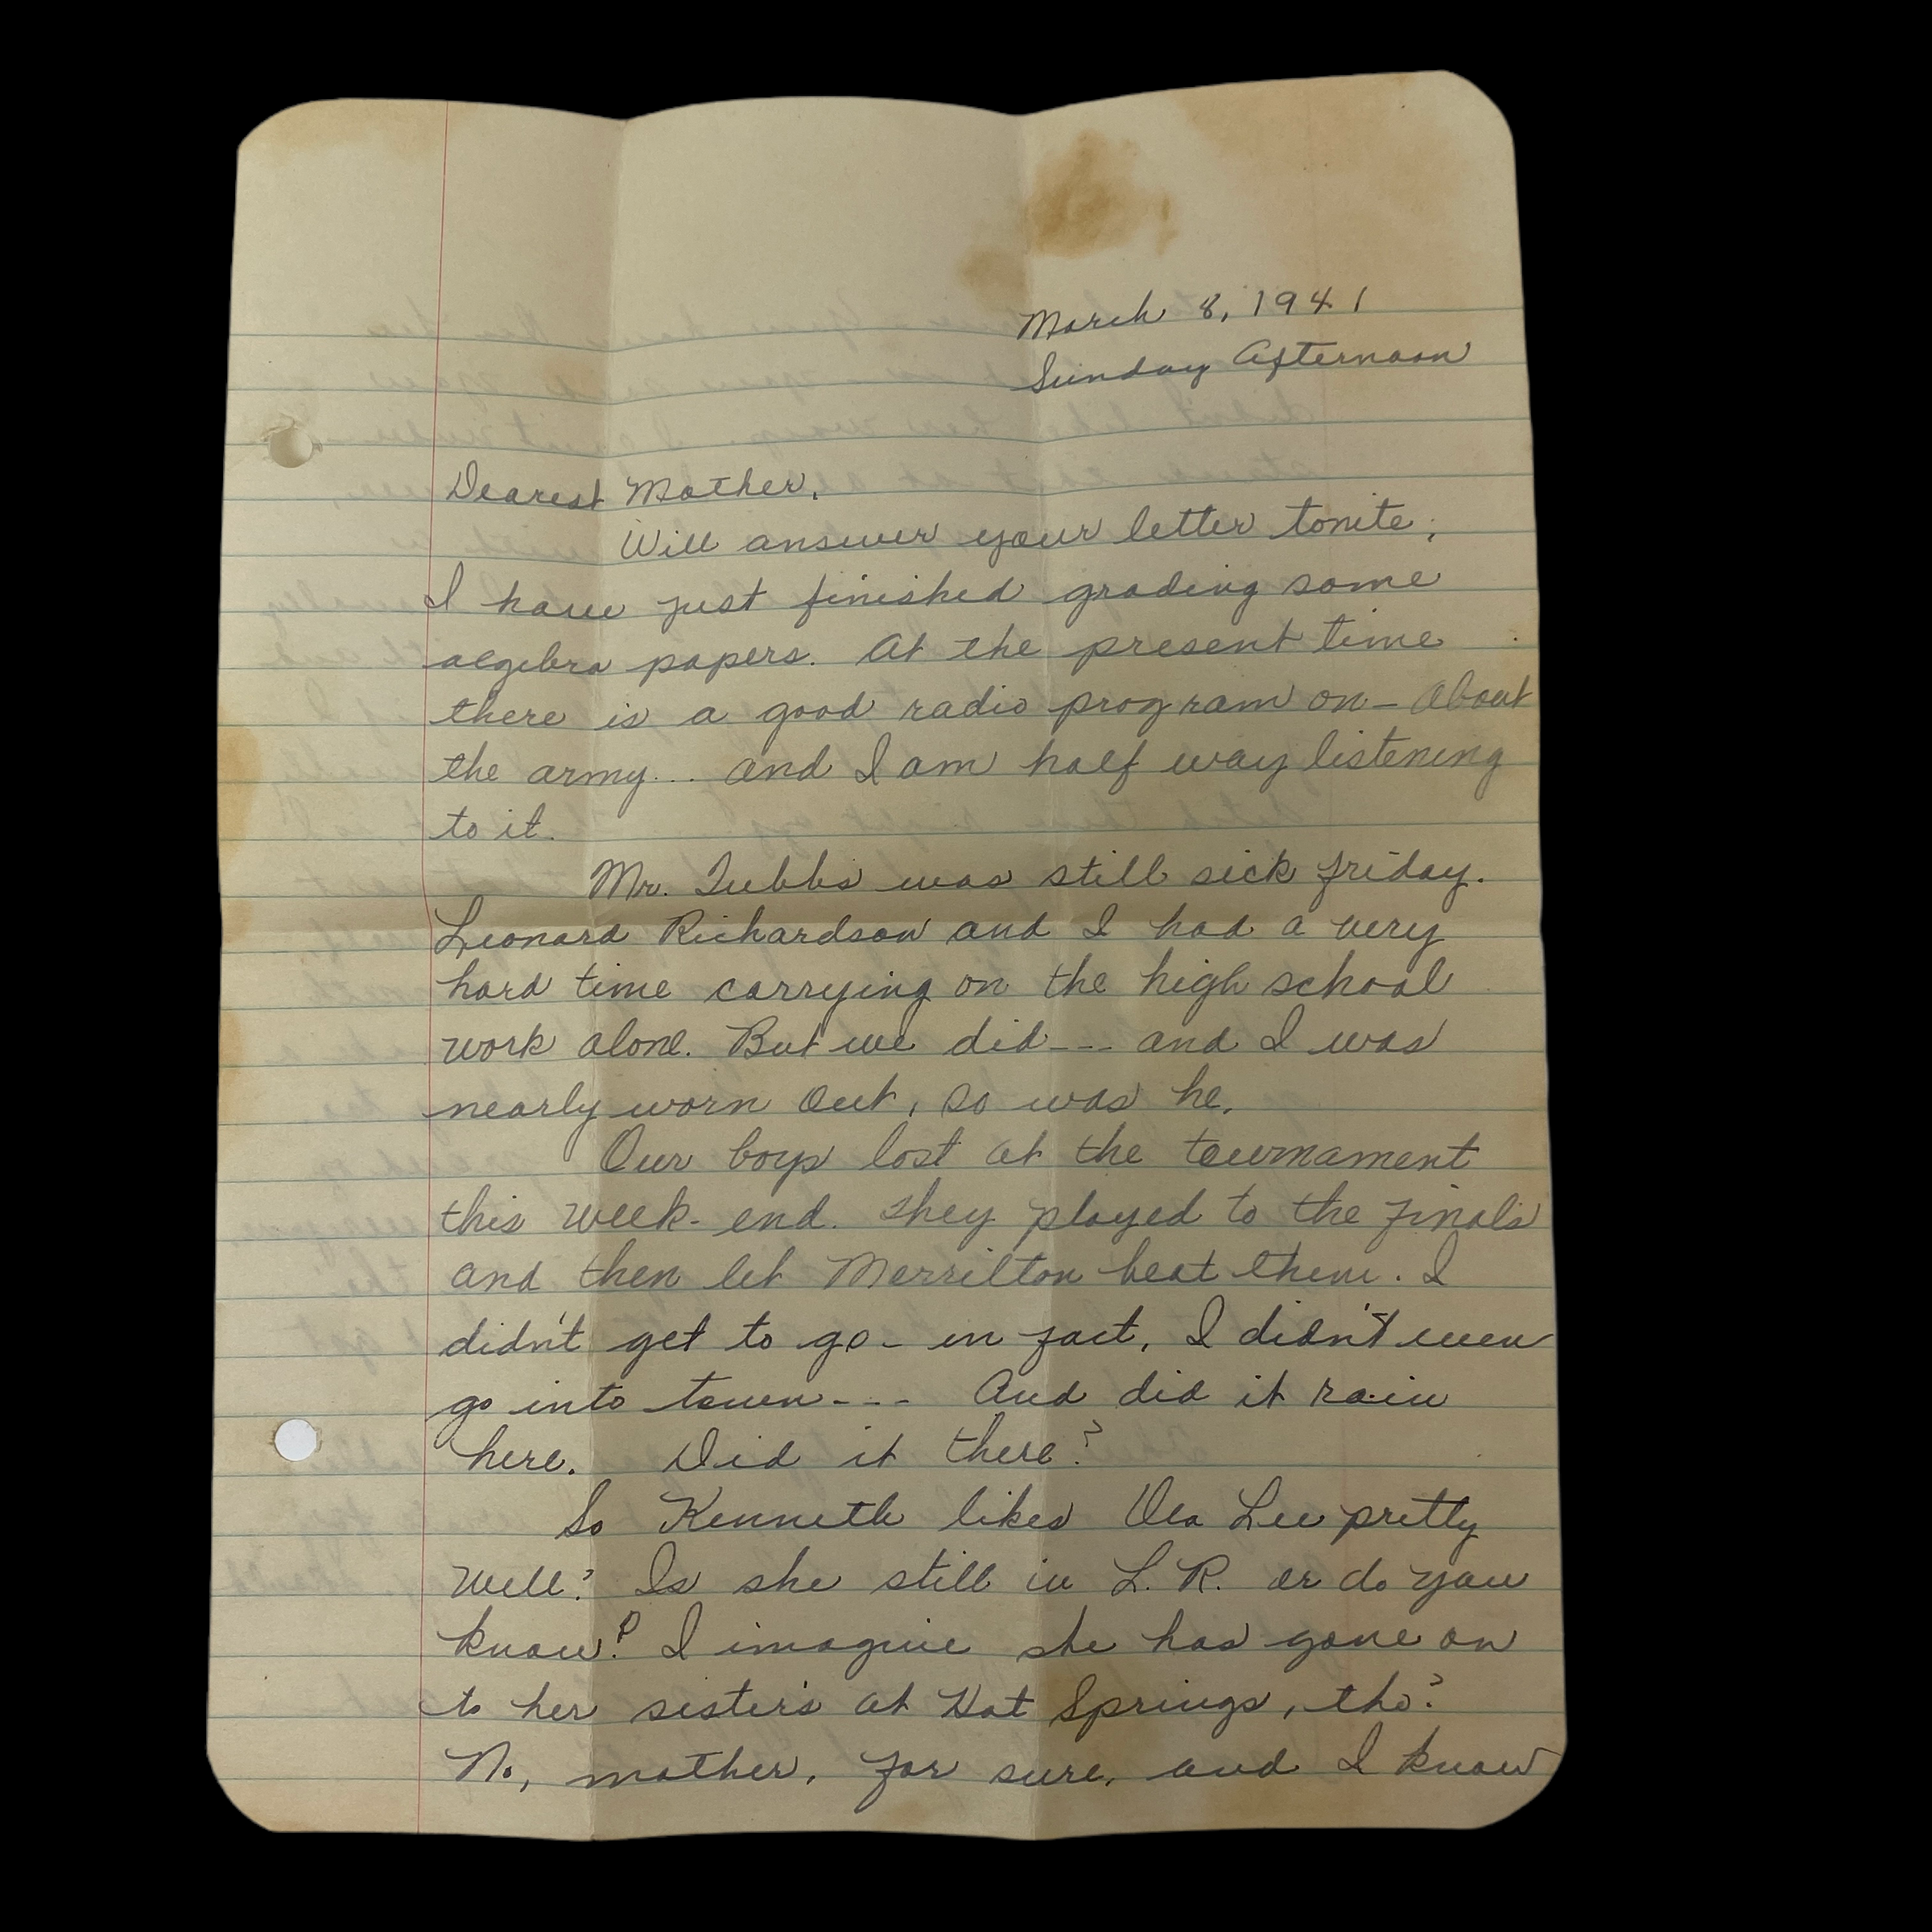 March 8, 1941
Sunday Afternoon
Dearest Mother,
Will answer your letter tonite,
I have just finished grading some
algebra papers. At the present time
there is a good radio program on - About
the army... and I am half way listening
to it.
Mr. Tubbs was still sick friday.
Leonard Richardson and I had a very
hard time carrying on the high school
work alone. But we did --- and I was
nearly worn out, so was he.
Our boys lost at the tournament
this week-end. They played to the finals
and then let Morrilton beat them. I
didn't get to go - in fact, I didn't even
go into town --- And did it rain
here. Did it there?
So Kenneth likes Lee pretty
well? Is she still in L. R. or do you
know? I imagine she has gone on
to her sister's at Hot Springs, tho?
No, mother, for sure, and I know